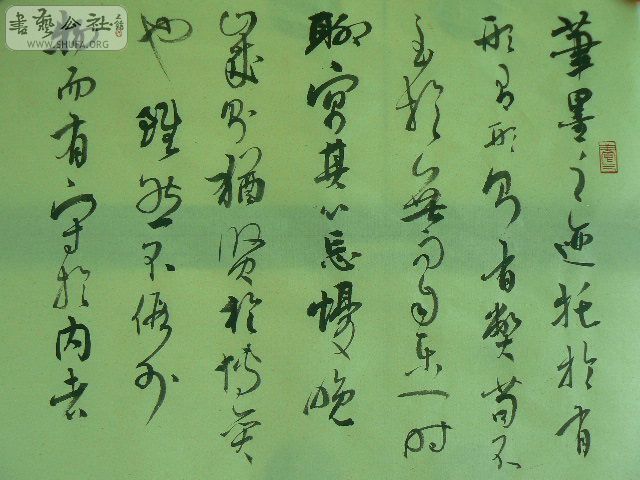 筆墨之迹托於有
形有形則有弊苟不
至於無而自樂一時
聊寓其心忘憂晚
歲則猶賢於博弈
也雖然不假外
物而有守於內者
書藝公社
WWW.SHUFA.ORG